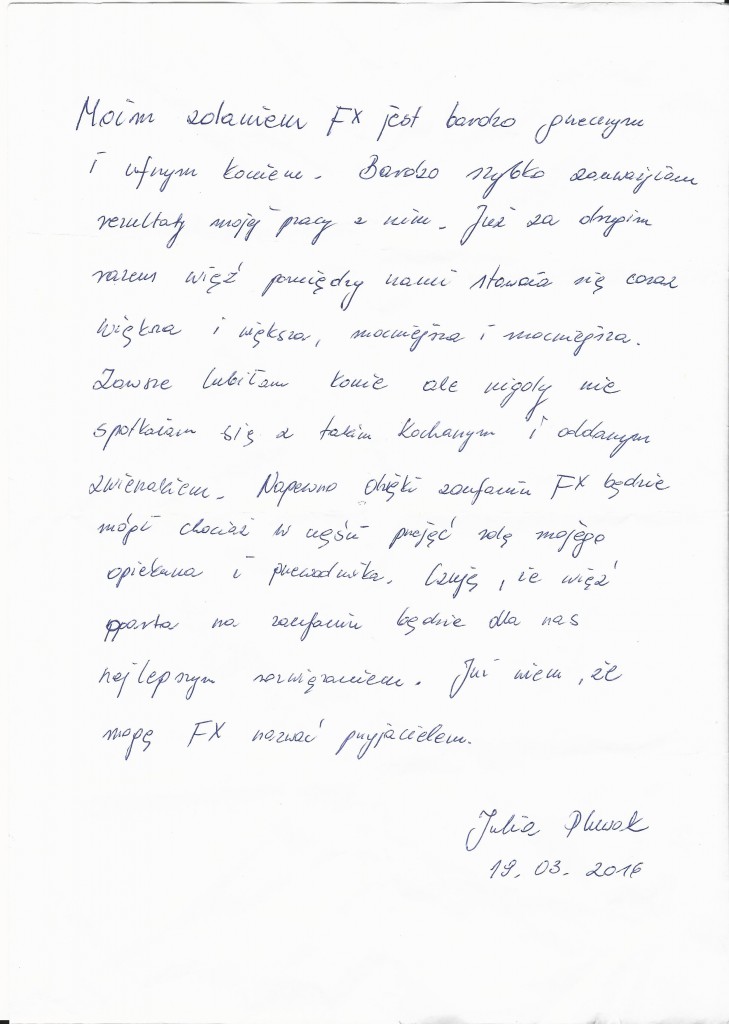 Moim zdaniem FX jest bardzo grzecznym
i ufnym koniem. Bardzo szybko zauważyłam
rezultaty mojej pracy z nim. Już za drugim
razem więź pomiędzy nami stawała się coraz
większa i większa, mocniejsza i mocniejsza.
Zawsze lubiłam konie ale nigdy nie
spotkałam się z takim kochanym i oddanym
zwierzakiem. Napewno dzięki zaufaniu FX będzie
mógł chociaż w części przejąć rolę mojego
opiekuna i przewodnika. Czuję, że więź
oparta na zaufaniu będzie dla nas
najlepszym rozwiązaniem. Już wiem, że
mogę FX nazwać przyjacielem.
Julia Plewak
19. 03. 2016